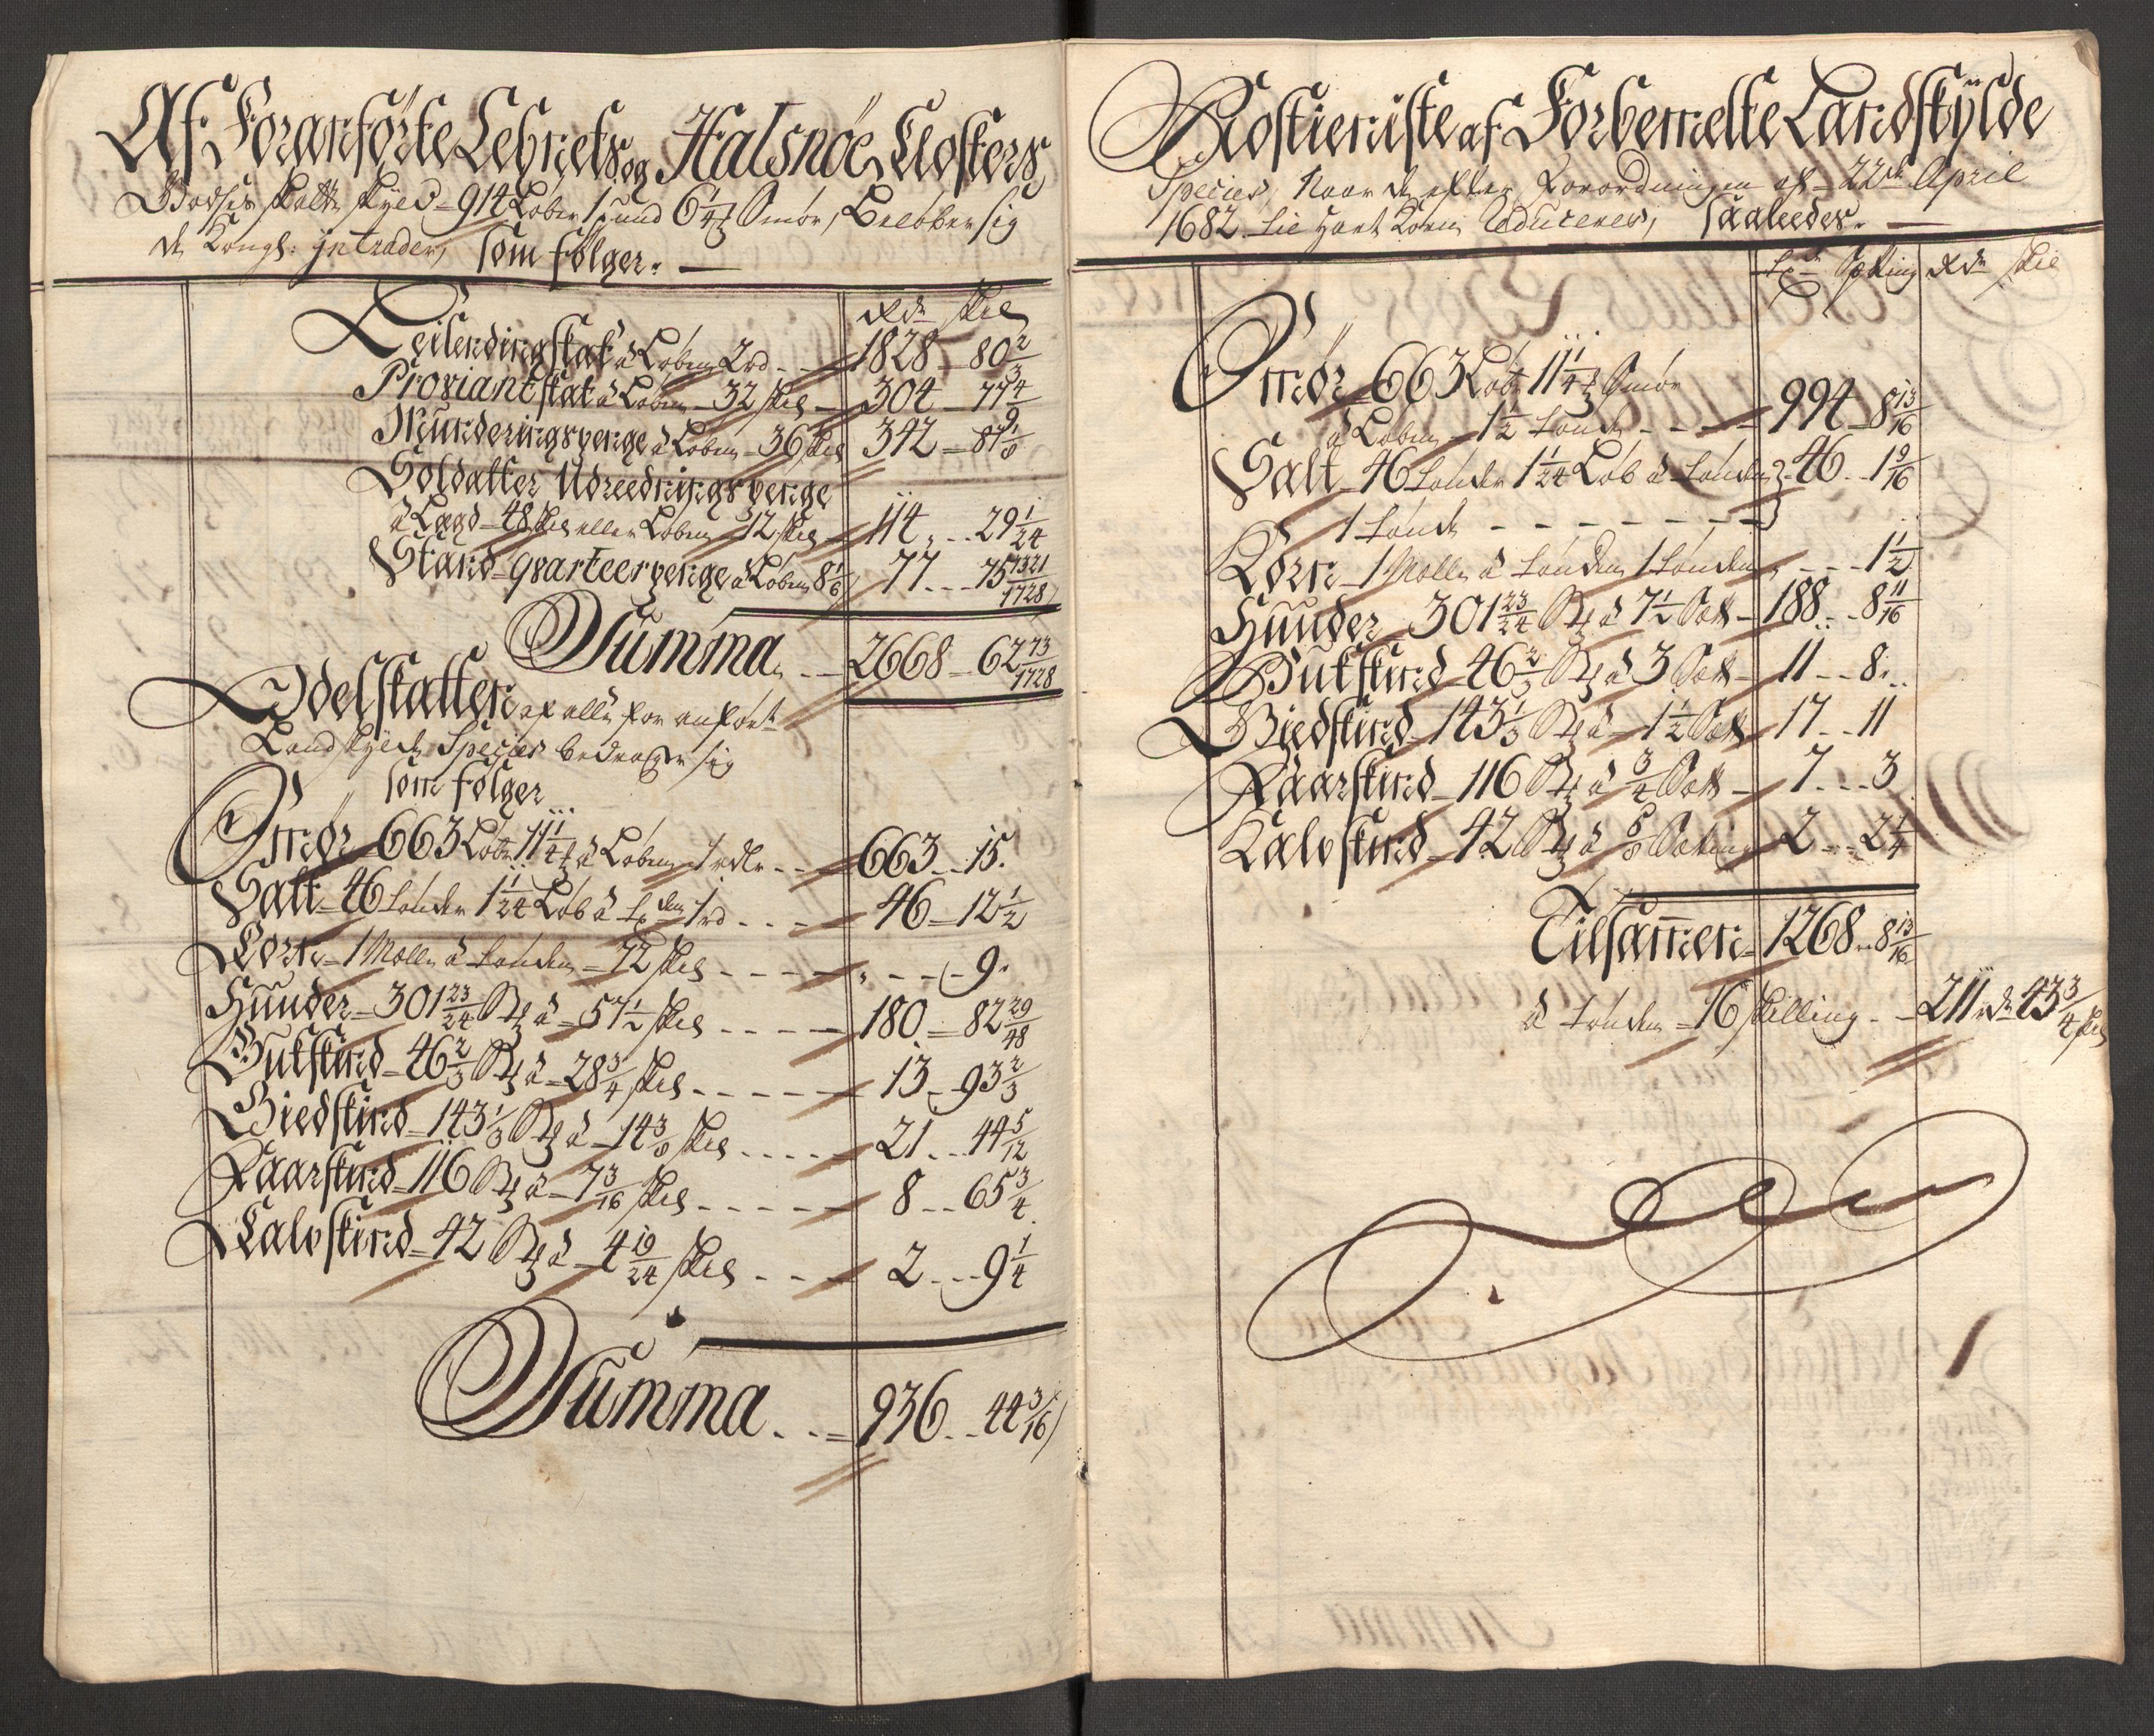 Af Foranførte Lehnets og Halsnöe Closters
Godses Skatte Skyld = 914 Løber 1 pund 6 1/4 Smør, Beløber sig
de Kongl: Jntrader, som følger. —
Rdr Skil
Leilendingskat à Løben 2 rd - - 1828 - 80 2/3
Proviantskat à Løben - 32 skil - 304 - 77 4/9
Munderingspenge à Løben - 36 skil 342 - 87 1/8
Soldatter Udreednings penge
à Lægd - 48 skil eller Løben - 12 skil - 114 - - 29 1/24
Stand = qvarteerpenge à Løben 8 1/6 77 - - - 75 1321/1728
Summa - - 2668 - 62 73/1728
Odelskatten af alle for anført
Landskyld Species bedrager sig
som følger
Smør - 663 Løbr 11 1/4 à Løben 1 rdr - - - 663 - - 15.
Salt - 46 tønder 1 1/24 Løb à tdn 1 rd - - - - 46 - 12 1/2
Korn - 1 Mæle à tønden - 72 skil - - - - - - - 9.
Huuder - 301 23/24 à - 57 1/2 skil - - - - 180 - 82 29/48
Bukskind - 46 2/3 à - 28 3/4 skil - - - - - 13 - 93 2/3
Giedskind - 143 1/3 à - 14 3/8 skil - - - - - 21 - - 44 5/12
Faarskind - 116 à - 7 3/16 skil - - - - - 8 - - 65 3/4
Kalvskind - 42 à - 4 19/24 skil - - - - 2 - - - 9 1/4
Summa - - - 936 - - 44 3/16
Rostieniste af Forbemelte Landskÿlde
Species, Naar de efter Forordningen af - 22de April
1682 - til Hart Korn Reduceres, saaledes. —
Tdr Sætting Rdr Skil
Smør - 663 Løbr 11 1/4 Smør
à Løben - 1 1/2 tønde - - - - 994 - 8 13/16
Salt - 46 tønder 1 1/24 Løb à tønden 46 - - 1 9/16
1 tønde - - - - - - -
Korn - 1 Mæle à tønden 1 tønde - - - - 1 1/2
Huuder - 301 23/24 à 7 1/2 Sætt - 188 - - 8 11/16
Bukskind - 46 2/3 à 3 Sætt - 11 - - 8 - -
Giedskind - 143 1/3 à - 1 1/2 Sætt 17 - - 11
Faarskind - 116 à 3/4 Sætt - 7 - - - 3
Kalvskind - 42 à 5/8 Sætting 2 - - 2 1/4
Tilsammen - 1268 - 8 13/16
à tønden - 16 skilling - - 211 rdr 43 3/4 skil